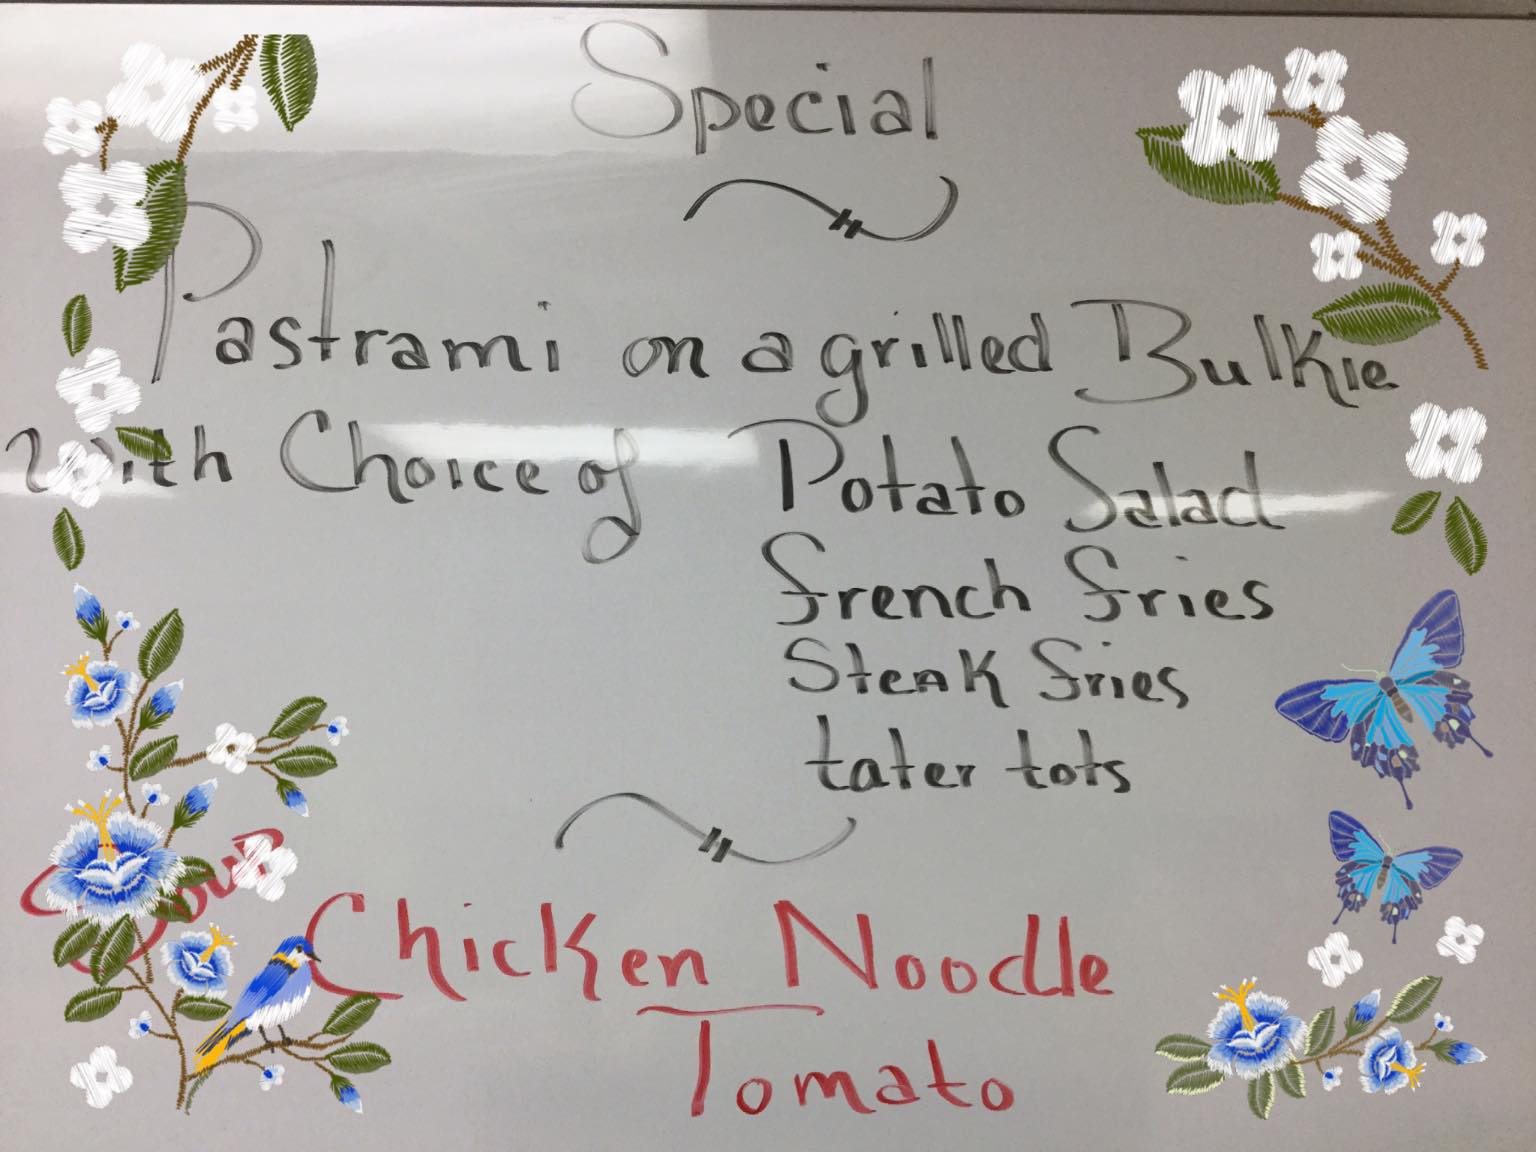 Special
Pastrami on a grilled Bulkie
With Choice of Potato Salad
French Fries
Steak Fries
tater tots
Soup
Chicken Noodle
Tomato